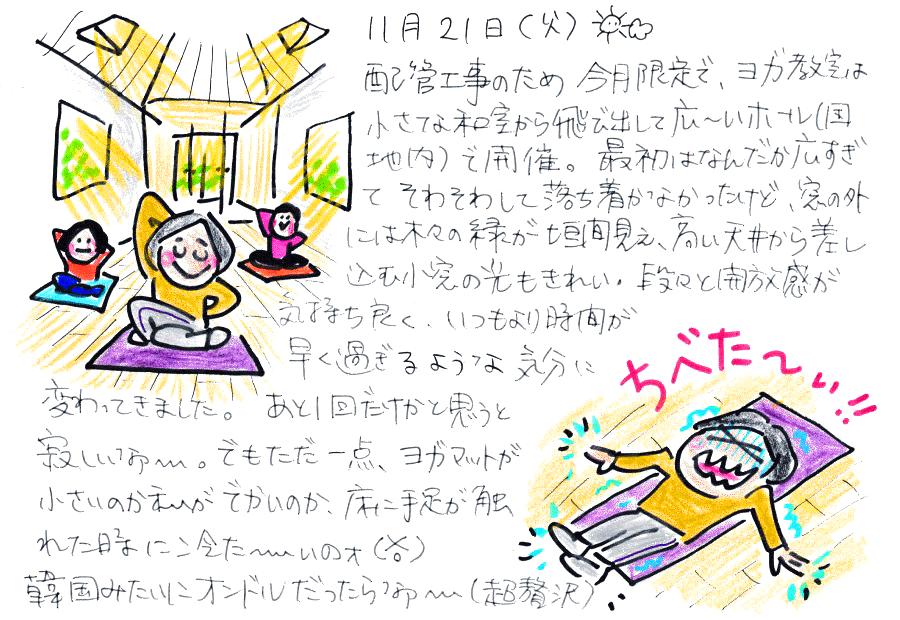 11月21日(火)
配管工事のため 今月限定で、ヨガ教室は
小さな和室から飛び出して広〜いホール(団
地内)で開催。最初はなんだか広すぎ
て そわそわして落ち着かなかったけど、窓の外
には木々の緑が垣間見え、高い天井から差し
込む小窓の光もきれい。段々と開放感が
気持ち良く、いつもより時間が
早く過ぎるような気分に
変わってきました。あと1回だけかと思うと
寂しいなぁ〜。でもただ一点、ヨガマットが
小さいのか私がでかいのか、床に手足が触
れた時に冷た〜いのォ(笑)
韓国みたいにオンドルだったらなぁ〜(超贅沢)
ちべた〜い!!